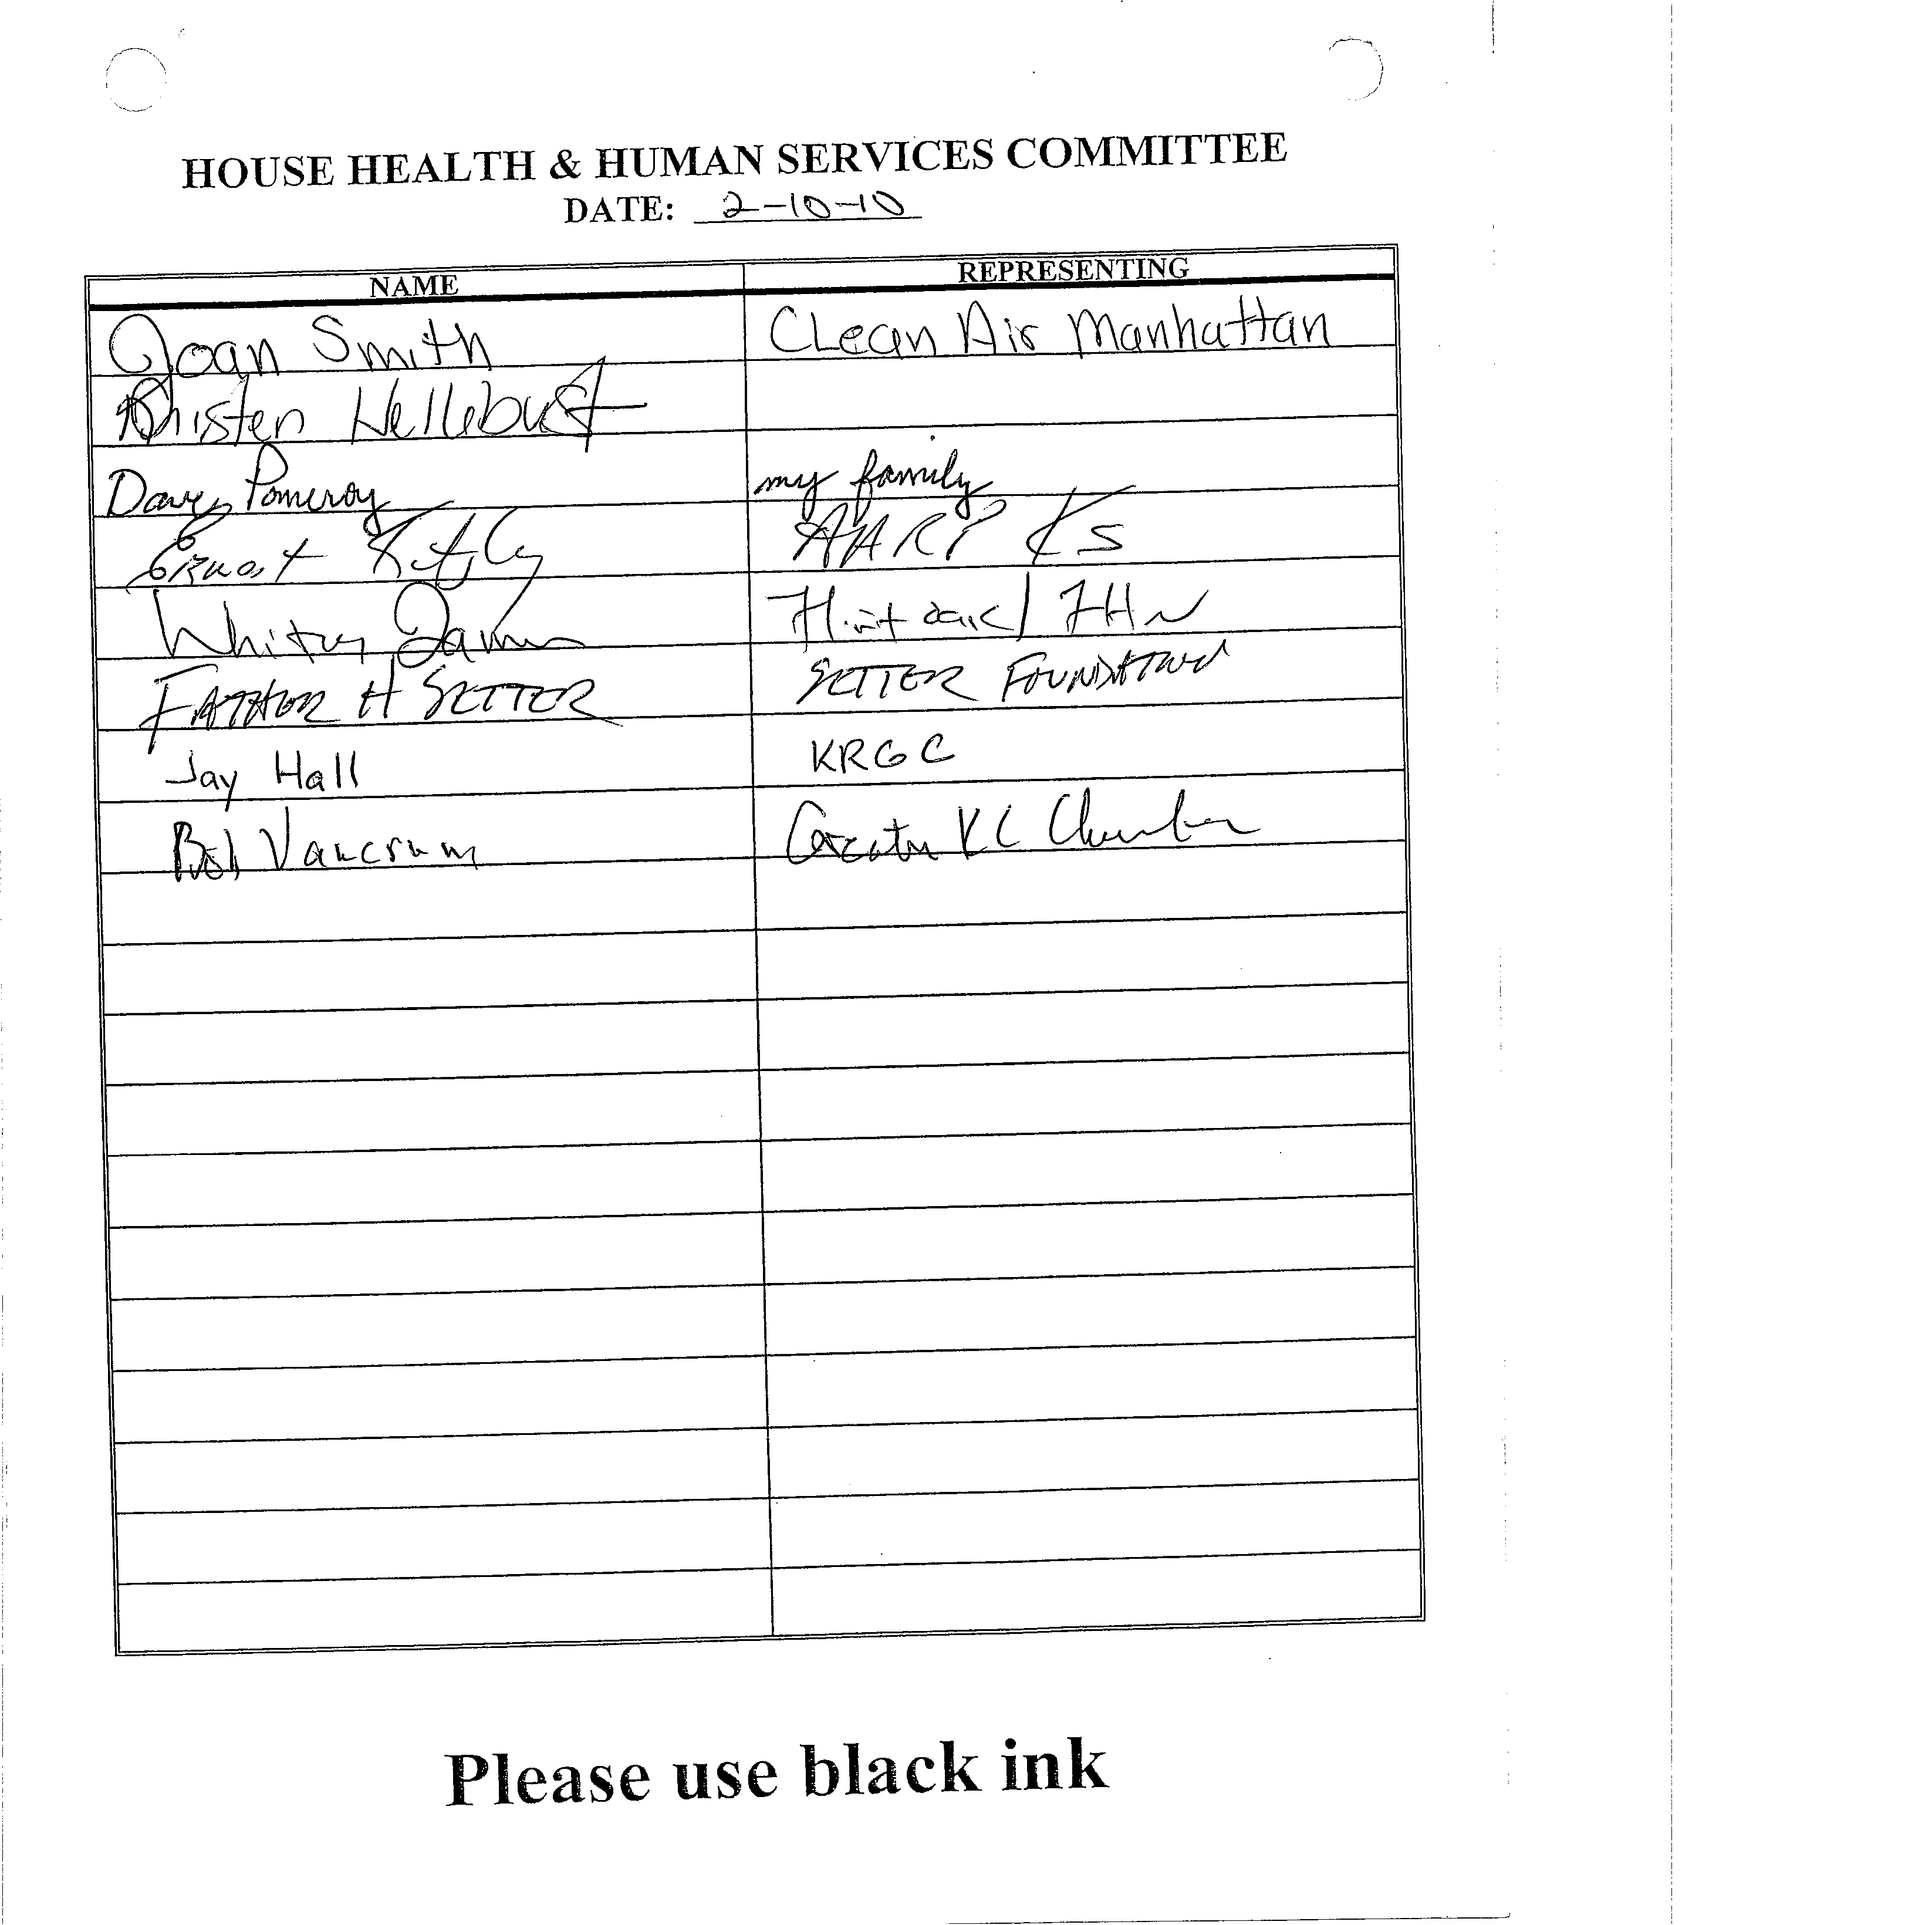 HOUSE HEALTH & HUMAN SERVICES COMMITTEE
DATE: 2-10-10
NAME REPRESENTING
Joan Smith CLean Air Manhattan
Kristen Hellebust
Dave Pomeroy my family
Ernest Kutzley AARP KS
Whitney Damron
FATHER H SETTER SETTER FOUNDATION
Jay Hall KRGC
Bob Vancrum Greater KC Chamber
Please use black ink